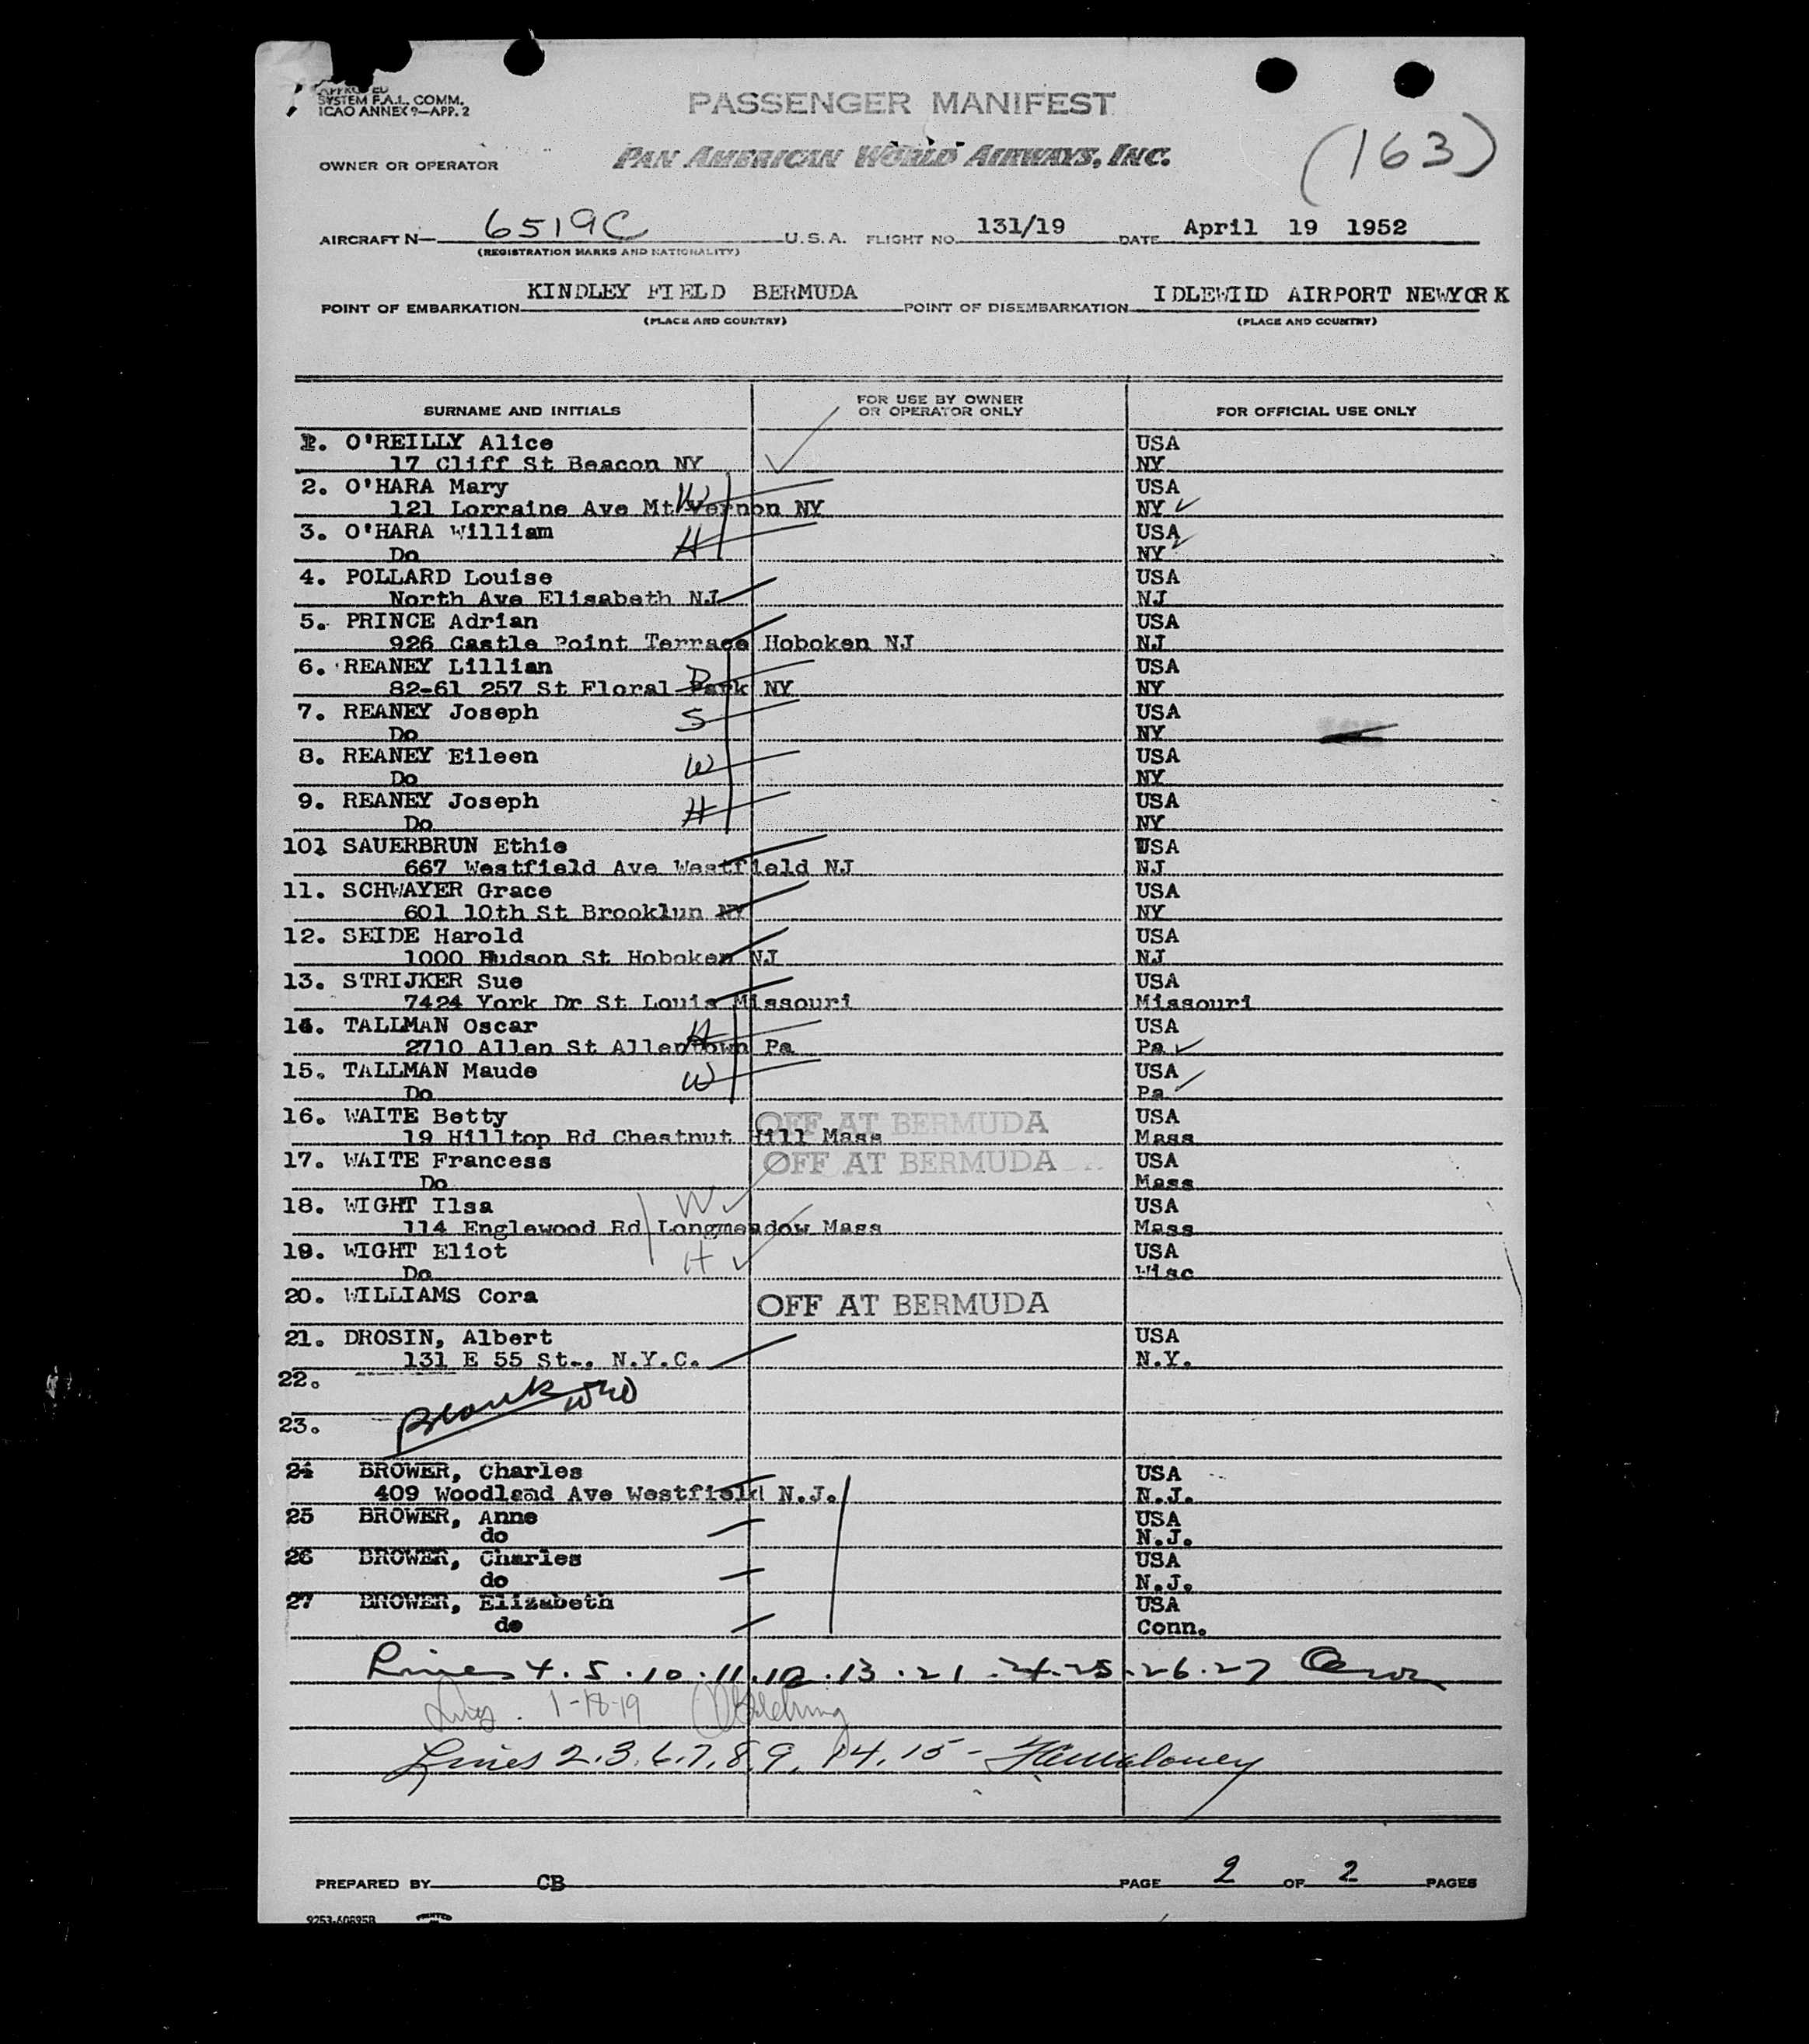 APPROVED
SYSTEM F.A.L. COMM.
ICAO ANNEX 9—APP. 2
PASSENGER MANIFEST
OWNER OR OPERATOR PAN AMERICAN WORLD AIRWAYS, INC.
(163)
AIRCRAFT N— 6519C U.S.A. FLIGHT NO. 131/19 DATE April 19 1952
(REGISTRATION MARKS AND NATIONALITY)
POINT OF EMBARKATION KINDLEY FIELD BERMUDA POINT OF DISEMBARKATION IDLEWIID AIRPORT NEWYORK
(PLACE AND COUNTRY) (PLACE AND COUNTRY)
SURNAME AND INITIALS FOR USE BY OWNER OR OPERATOR ONLY FOR OFFICIAL USE ONLY
1. O'REILLY Alice USA
17 Cliff St Beacon NY NY
2. O'HARA Mary W USA
121 Lorraine Ave Mt Vernon NY NY
3. O'HARA William H USA
Do NY
4. POLLARD Louise USA
North Ave Elisabeth NJ NJ
5. PRINCE Adrian USA
926 Castle Point Terrace Hoboken NJ NJ
6. REANEY Lillian D USA
82-61 257 St Floral Park NY NY
7. REANEY Joseph S USA
Do NY
8. REANEY Eileen W USA
Do NY
9. REANEY Joseph H USA
Do NY
101 SAUERBRUN Ethie USA
667 Westfield Ave Westfield NJ NJ
11. SCHWAYER Grace USA
601 10th St Brooklun NY NY
12. SEIDE Harold USA
1000 Hudson St Hoboken NJ NJ
13. STRIJKER Sue USA
7424 York Dr St Louis Missouri Missouri
14. TALLMAN Oscar H USA
2710 Allen St Allentown Pa Pa
15. TALLMAN Maude W USA
Do Pa
16. WAITE Betty OFF AT BERMUDA USA
19 Hilltop Rd Chestnut Hill Mass Mass
17. WAITE Francess OFF AT BERMUDA USA
Do Mass
18. WIGHT Ilsa W USA
114 Englewood Rd Longmeadow Mass Mass
19. WIGHT Eliot H USA
Do Wisc
20. WILLIAMS Cora OFF AT BERMUDA
21. DROSIN, Albert USA
131 E 55 St., N.Y.C. N.Y.
22.
Blank
23.
24 BROWER, Charles USA
409 Woodland Ave Westfield N.J. N.J.
25 BROWER, Anne USA
do N.J.
26 BROWER, Charles USA
do N.J.
27 BROWER, Elizabeth USA
do Conn.
Lines 4.5.10.11.12.13.21.24.25.26.27
1-18-19
Lines 2.3.6.7.8.9.14.15- Maloney
PREPARED BY CB PAGE 2 OF 2 PAGES